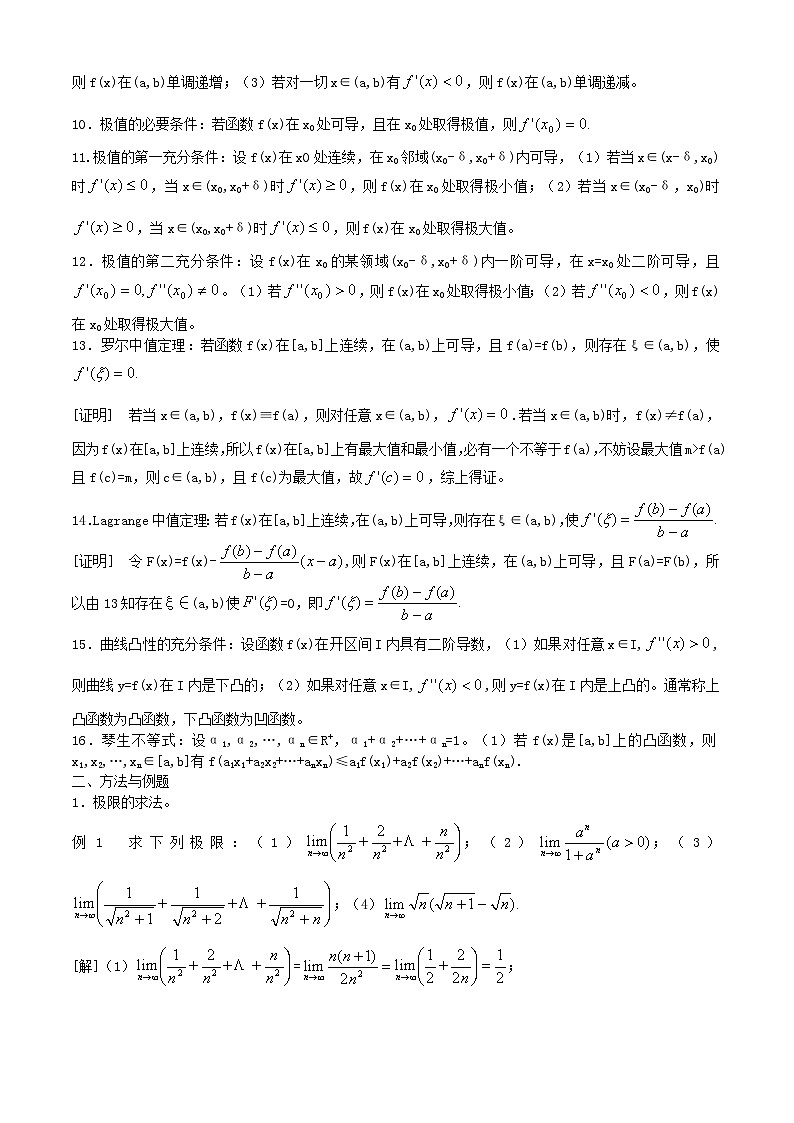 则 f(x)在(a,b)单调递增；（3）若对一切 x∈(a,b)有 f'(x)<0，则 f(x)在(a,b)单调递减。
10．极值的必要条件：若函数 f(x)在 x₀处可导，且在 x₀处取得极值，则 f'(x₀)=0.
11.极值的第一充分条件：设 f(x)在 x0 处连续，在 x₀邻域(x₀-δ,x₀+δ)内可导，（1）若当 x∈(x-δ,x₀)
时 f'(x)≤0，当 x∈(x₀,x₀+δ)时 f'(x)≥0，则 f(x)在 x₀处取得极小值；（2）若当 x∈(x₀-δ,x₀)时
f'(x)≥0，当 x∈(x₀,x₀+δ)时 f'(x)≤0，则 f(x)在 x₀处取得极大值。
12．极值的第二充分条件：设 f(x)在 x₀的某领域(x₀-δ,x₀+δ)内一阶可导，在 x=x₀处二阶可导，且
f'(x₀)=0,f''(x₀)≠0。（1）若 f''(x₀)>0，则 f(x)在 x₀处取得极小值；（2）若 f''(x₀)<0，则 f(x)
在 x₀处取得极大值。
13．罗尔中值定理：若函数 f(x)在[a,b]上连续，在(a,b)上可导，且 f(a)=f(b)，则存在ξ∈(a,b)，使
f'(ξ)=0.
[证明] 若当 x∈(a,b)，f(x)≡f(a)，则对任意 x∈(a,b)，f'(x)=0.若当 x∈(a,b)时，f(x)≠f(a)，
因为 f(x)在[a,b]上连续，所以 f(x)在[a,b]上有最大值和最小值，必有一个不等于 f(a)，不妨设最大值 m>f(a)
且 f(c)=m，则 c∈(a,b)，且 f(c)为最大值，故 f'(c)=0，综上得证。
14.Lagrange 中值定理：若 f(x)在[a,b]上连续，在(a,b)上可导，则存在ξ∈(a,b)，使 f'(ξ)=(f(b)-f(a))/(b-a).
[证明] 令 F(x)=f(x)-(f(b)-f(a))/(b-a)(x-a),则 F(x)在[a,b]上连续，在(a,b)上可导，且 F(a)=F(b)，所
以由 13 知存在ξ∈(a,b)使 F'(ξ)=0，即 f'(ξ)=(f(b)-f(a))/(b-a).
15．曲线凸性的充分条件：设函数 f(x)在开区间 I 内具有二阶导数，（1）如果对任意 x∈I,f''(x)>0,
则曲线 y=f(x)在 I 内是下凸的；（2）如果对任意 x∈I,f''(x)<0,则 y=f(x)在 I 内是上凸的。通常称上
凸函数为凸函数，下凸函数为凹函数。
16．琴生不等式：设α₁,α₂,…,αₙ∈R⁺，α₁+α₂+…+αₙ=1。（1）若 f(x)是[a,b]上的凸函数，则
x₁,x₂,…,xₙ∈[a,b]有 f(a₁x₁+a₂x₂+…+aₙxₙ)≤a₁f(x₁)+a₂f(x₂)+…+aₙf(xₙ).
二、方法与例题
1．极限的求法。
例 1 求下列极限：（1）lim n→∞ (1/n²+2/n²+Λ+n/n²)；（2）lim n→∞ aⁿ/(1+aⁿ)(a>0)；（3）
lim n→∞ (1/√(n²+1)+1/√(n²+2)+Λ+1/√(n²+n))；（4）lim n→∞ √n(√(n+1)-√n).
[解]（1）lim n→∞ (1/n²+2/n²+Λ+n/n²)=lim n→∞ n(n+1)/2n²=lim n→∞ (1/2+2/2n)=1/2；